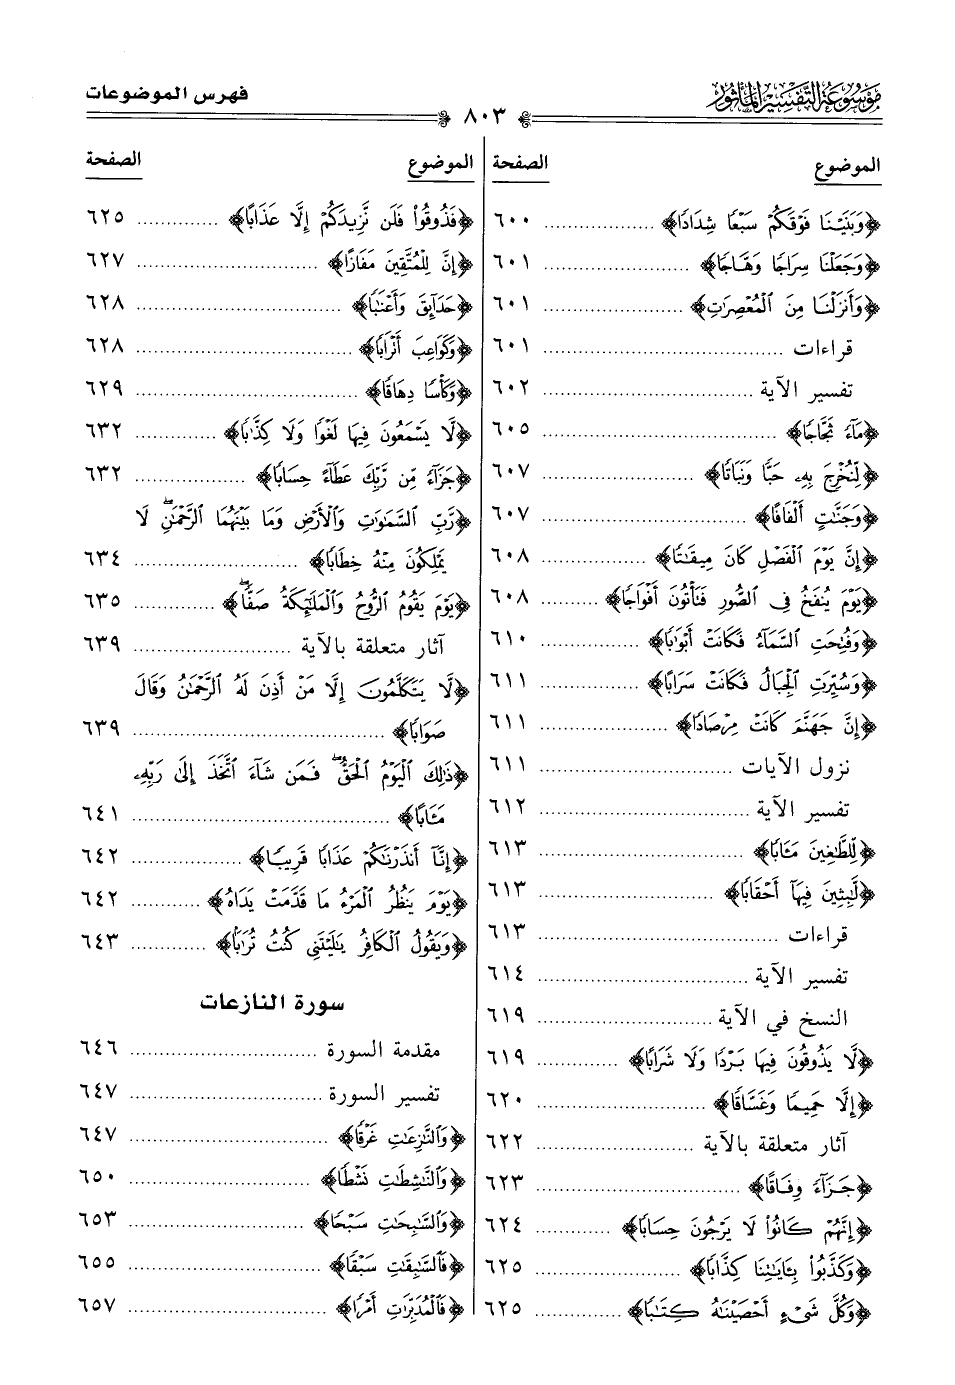 موسوعة التفسير المأثور
فهرس الموضوعات
٨٠٣
الموضوع الصفحة
﴿وَبَنَيْنَا فَوْقَكُمْ سَبْعًا شِدَادًا﴾ ٦٠٠
﴿وَجَعَلْنَا سِرَاجًا وَهَّاجًا﴾ ٦٠١
﴿وَأَنزَلْنَا مِنَ ٱلْمُعْصِرَٰتِ﴾ ٦٠١
قراءات ٦٠١
تفسير الآية ٦٠٢
﴿مَآءً ثَجَّاجًا﴾ ٦٠٥
﴿لِّنُخْرِجَ بِهِۦ حَبًّا وَنَبَاتًا﴾ ٦٠٧
﴿وَجَنَّٰتٍ أَلْفَافًا﴾ ٦٠٧
﴿إِنَّ يَوْمَ ٱلْفَصْلِ كَانَ مِيقَٰتًا﴾ ٦٠٨
﴿يَوْمَ يُنفَخُ فِى ٱلصُّورِ فَتَأْتُونَ أَفْوَاجًا﴾ ٦٠٨
﴿وَفُتِحَتِ ٱلسَّمَآءُ فَكَانَتْ أَبْوَٰبًا﴾ ٦١٠
﴿وَسُيِّرَتِ ٱلْجِبَالُ فَكَانَتْ سَرَابًا﴾ ٦١١
﴿إِنَّ جَهَنَّمَ كَانَتْ مِرْصَادًا﴾ ٦١١
نزول الآيات ٦١١
تفسير الآية ٦١٢
﴿لِّلطَّٰغِينَ مَـَٔابًا﴾ ٦١٣
﴿لَّٰبِثِينَ فِيهَآ أَحْقَابًا﴾ ٦١٣
قراءات ٦١٣
تفسير الآية ٦١٤
النسخ في الآية ٦١٩
﴿لَّا يَذُوقُونَ فِيهَا بَرْدًا وَلَا شَرَابًا﴾ ٦١٩
﴿إِلَّا حَمِيمًا وَغَسَّاقًا﴾ ٦٢٠
آثار متعلقة بالآية ٦٢٢
﴿جَزَآءً وِفَاقًا﴾ ٦٢٣
﴿إِنَّهُمْ كَانُوا۟ لَا يَرْجُونَ حِسَابًا﴾ ٦٢٤
﴿وَكَذَّبُوا۟ بِـَٔايَٰتِنَا كِذَّابًا﴾ ٦٢٥
﴿وَكُلَّ شَىْءٍ أَحْصَيْنَٰهُ كِتَٰبًا﴾ ٦٢٥
الموضوع الصفحة
﴿فَذُوقُوا۟ فَلَن نَّزِيدَكُمْ إِلَّا عَذَابًا﴾ ٦٢٥
﴿إِنَّ لِلْمُتَّقِينَ مَفَازًا﴾ ٦٢٧
﴿حَدَآئِقَ وَأَعْنَٰبًا﴾ ٦٢٨
﴿وَكَوَاعِبَ أَتْرَابًا﴾ ٦٢٨
﴿وَكَأْسًا دِهَاقًا﴾ ٦٢٩
﴿لَّا يَسْمَعُونَ فِيهَا لَغْوًا وَلَا كِذَّٰبًا﴾ ٦٣٢
﴿جَزَآءً مِّن رَّبِّكَ عَطَآءً حِسَابًا﴾ ٦٣٢
﴿رَّبِّ ٱلسَّمَٰوَٰتِ وَٱلْأَرْضِ وَمَا بَيْنَهُمَا ٱلرَّحْمَٰنِ ۖ لَا
يَمْلِكُونَ مِنْهُ خِطَابًا﴾ ٦٣٤
﴿يَوْمَ يَقُومُ ٱلرُّوحُ وَٱلْمَلَٰٓئِكَةُ صَفًّا ۖ﴾ ٦٣٥
آثار متعلقة بالآية ٦٣٩
﴿لَّا يَتَكَلَّمُونَ إِلَّا مَنْ أَذِنَ لَهُ ٱلرَّحْمَٰنُ وَقَالَ
صَوَابًا﴾ ٦٣٩
﴿ذَٰلِكَ ٱلْيَوْمُ ٱلْحَقُّ ۖ فَمَن شَآءَ ٱتَّخَذَ إِلَىٰ رَبِّهِۦ
مَـَٔابًا﴾ ٦٤١
﴿إِنَّآ أَنذَرْنَٰكُمْ عَذَابًا قَرِيبًا﴾ ٦٤٢
﴿يَوْمَ يَنظُرُ ٱلْمَرْءُ مَا قَدَّمَتْ يَدَاهُ﴾ ٦٤٢
﴿وَيَقُولُ ٱلْكَافِرُ يَٰلَيْتَنِى كُنتُ تُرَٰبًا﴾ ٦٤٣
سورة النازعات
مقدمة السورة ٦٤٦
تفسير السورة ٦٤٧
﴿وَٱلنَّٰزِعَٰتِ غَرْقًا﴾ ٦٤٧
﴿وَٱلنَّٰشِطَٰتِ نَشْطًا﴾ ٦٥٠
﴿وَٱلسَّٰبِحَٰتِ سَبْحًا﴾ ٦٥٣
﴿فَٱلسَّٰبِقَٰتِ سَبْقًا﴾ ٦٥٥
﴿فَٱلْمُدَبِّرَٰتِ أَمْرًا﴾ ٦٥٧